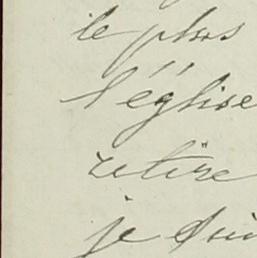 le plus
l'église
retire
je suis